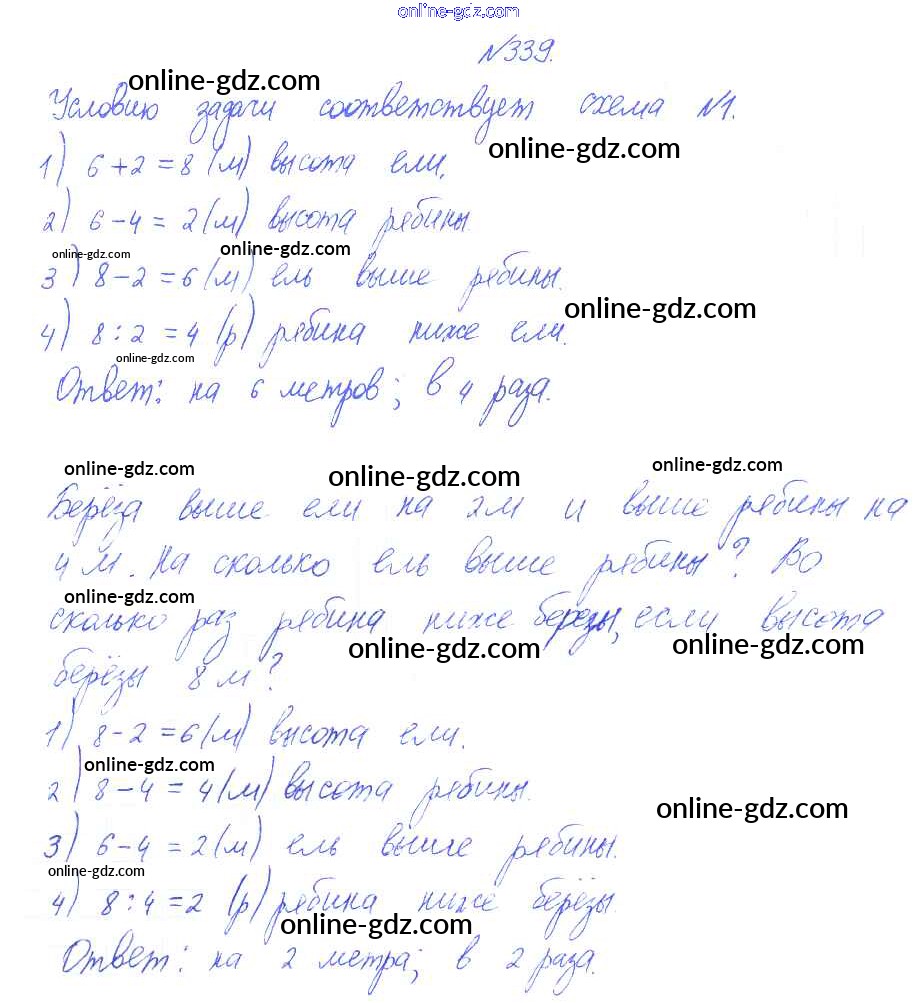 online-gdz.com
№339.
online-gdz.com
Условию задачи соответствует схема №1.
online-gdz.com
1) 6+2=8 (м) высота ели.
2) 6-4=2 (м) высота рябины.
online-gdz.com
online-gdz.com
3) 8-2=6 (м) ель выше рябины.
online-gdz.com
4) 8:2=4 (р) рябина ниже ели.
online-gdz.com
Ответ: на 6 метров; в 4 раза.
online-gdz.com
online-gdz.com
online-gdz.com
Берёза выше ели на 2м и выше рябины на
4 м. На сколько ель выше рябины? Во
online-gdz.com
сколько раз рябина ниже березы, если высота
online-gdz.com
online-gdz.com
берёзы 8 м?
1) 8-2=6 (м) высота ели.
online-gdz.com
2) 8-4=4 (м) высота рябины.
online-gdz.com
3) 6-4=2 (м) ель выше рябины.
online-gdz.com
4) 8:4=2 (р) рябина ниже берёзы.
online-gdz.com
Ответ: на 2 метра; в 2 раза.